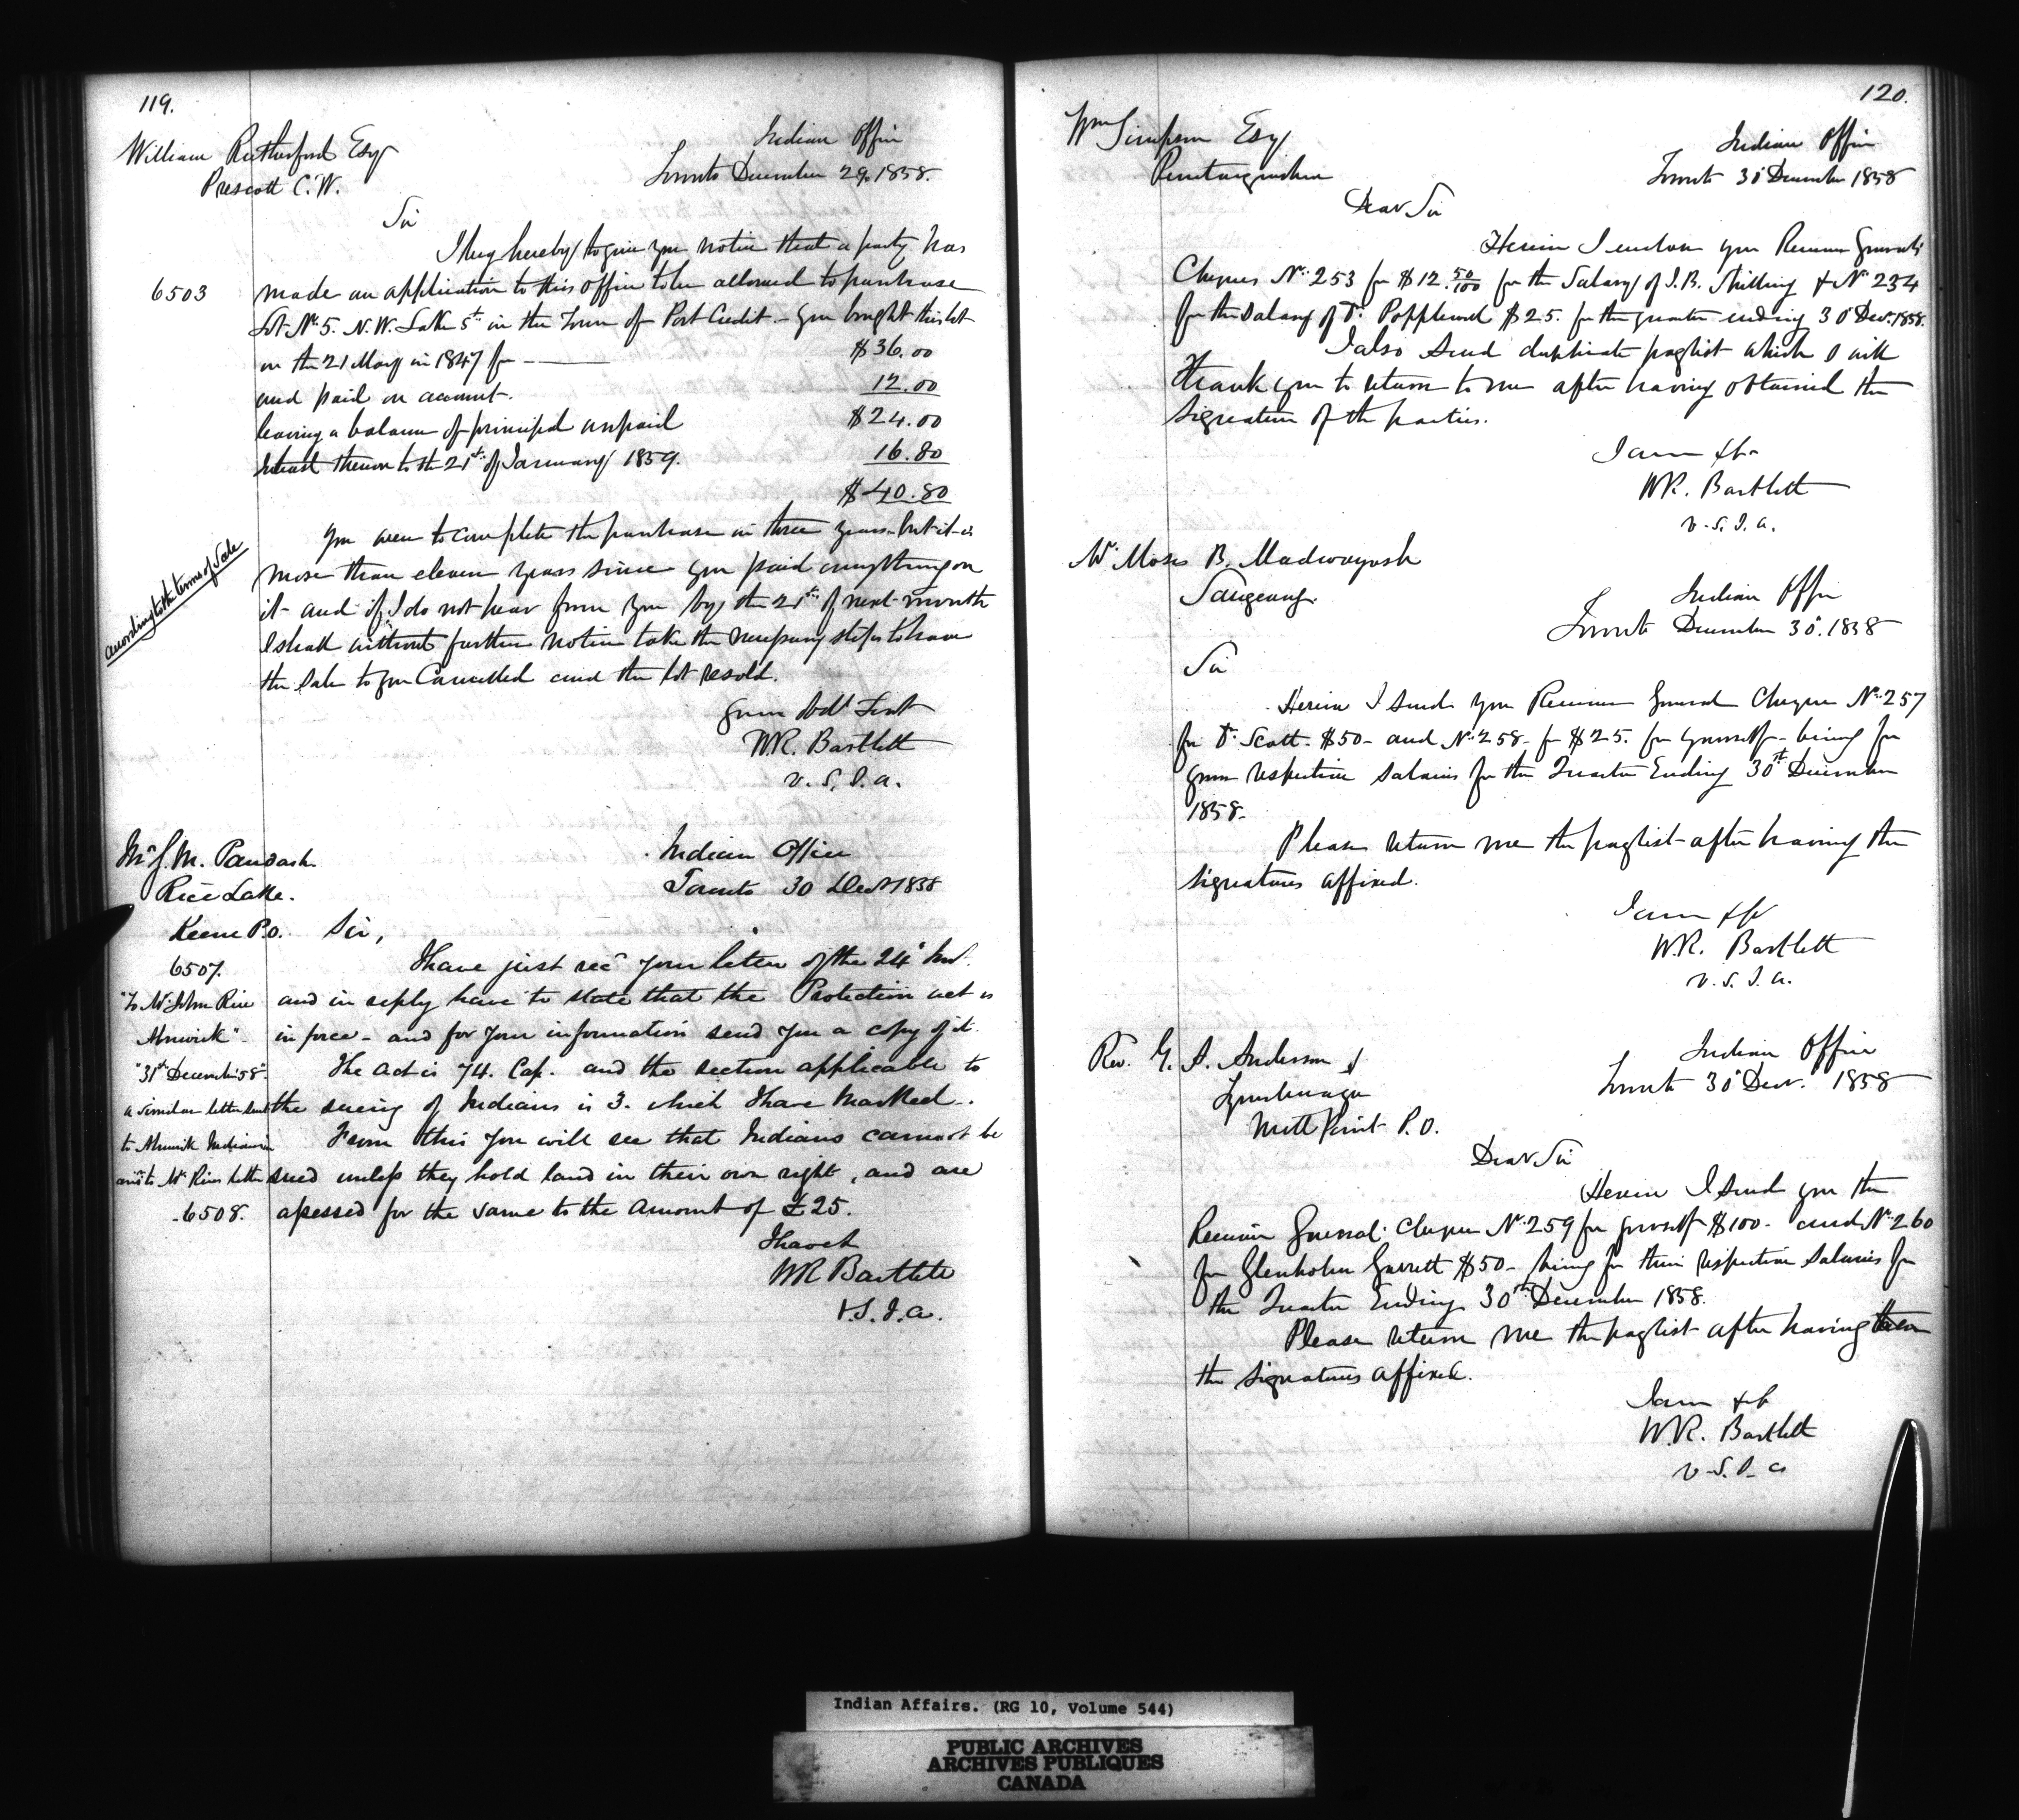 119.
William Rutherford Esqr
Prescott C.W.
Indian Office
Toronto December 29. 1858
Sir
I beg hereby to give you notice that a party has
6503
made an application to this office to be allowed to purchase
Lot No. 5. N.W. Lake St. in the Town of Port Credit - you bought this lot
on the 21 May in 1847 for - $36.00
and paid on account. 12.00
leaving a balance of principal unpaid $24.00
Interest thereon to the 21st of January 1859. 16.80
$40.80
according to the terms of Sale
You were to complete the purchase in three years - but it is
more than eleven years since you paid anything on
it - and if I do not hear from you by the 21st of next month
I shall without further notice take the necessary steps to have
the Sale to you Cancelled and the lot resold.
Your Obdt Servt
W.R. Bartlett
V.S.I.A.
Mr J. M. Paudash
Rice Lake.
Keene P.O.
Indian Office
Toronto 30 Decr 1858
Sir,
6507.
I have just recd your letter of the 24th Inst.
and in reply have to state that the Protection act is
in force - and for your information send you a copy of it.
The act is 74. Cap. and the section applicable to
the sueing of Indians is 3. which I have marked.
From this you will see that Indians cannot be
sued unless they hold land in their own right, and are
assessed for the same to the amount of £25.
"To Mr John Rice
Alnwick"
"31st December 58".
a similar letter sent
to Alnwick Indians in
ansr to Mr Rices letter
6508.
I have &c
W R Bartlett
V.S.I.A.
120.
Wm Simpson Esqr
Penetanguishene
Indian Office
Toronto 30th December 1858
Dear Sir
Herein I enclose you Receiver Generals
Cheques No. 253 for $12.50/100 for the Salary of J. B. Skilling & No 234
for the Salary of Dr. Popplewell $25. for the quarter ending 30th Decr. 1858.
I also send duplicate paylist which I will
thank you to return to me after having obtained the
signature of the parties.
I am &c
W.R. Bartlett
V.S.I.A.
Mr Moses B. Madwayosh
Saugeeng.
Indian Office
Toronto December 30th. 1858
Sir
Herein I send you Receiver General Cheque No. 257
for Dr. Scott. $50 - and No. 258 - for $25. for yourself - being for
your respective salaries for the Quarter Ending 30th December
1858.
Please return me the paylist - after having the
signatures affixed.
I am &c
W.R. Bartlett
V.S.I.A.
Rev. G. A. Anderson
Tyendenaga
Mill Point P.O.
Indian Office
Toronto 30th Decr. 1858
Dear Sir
Herein I send you the
Receiver General Cheques No. 259 for yourself $100 - and No. 260
for Glenholm Garrett $50 - being for their respective Salaries for
the Quarter Ending 30th December 1858.
Please return me the paylist after having
the signatures affixed.
I am &c
W.R. Bartlett
V.S.I.A
Indian Affairs. (RG 10, Volume 544)
PUBLIC ARCHIVES
ARCHIVES PUBLIQUES
CANADA